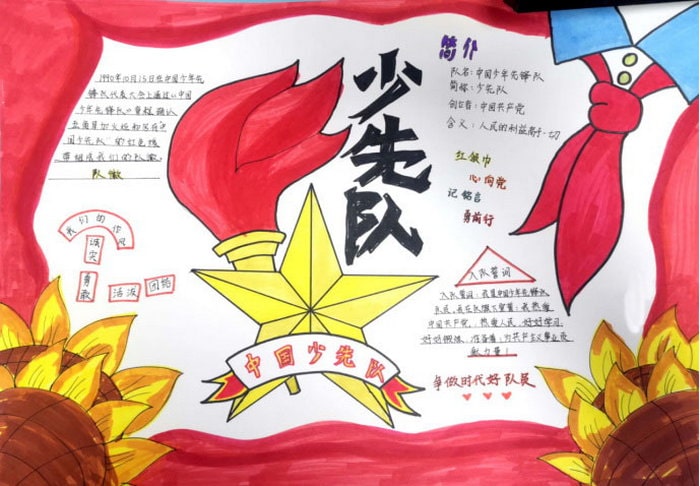 1990年10月15日在中国少年先
锋队代表大会上通过《中国
少年先锋队》章程确认
五角星加火炬和写有"中
国少先队"的红色绶
带组成我们的队徽。
队徽
我们的作风
诚实
勇敢
活泼
团结
少先队
中国少先队
简介
队名:中国少年先锋队
简称:少先队
创立者:中国共产党
含义:人民的利益高于一切
红领巾
心向党
记铭言
勇前行
入队誓词
入队誓词:我是中国少年先锋队
队员,我在队旗下宣誓:我热爱
中国共产党,热爱人民,好好学习
好好锻炼,准备着:为共产主义事业贡
献力量!
争做时代好队员